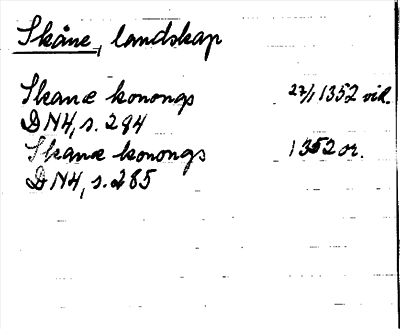 Skåne, landskap
Skanæ konongs 27/1 1352 vid.
DN4, s. 284
Skanæ konongs 1352 or.
DN4, s. 285